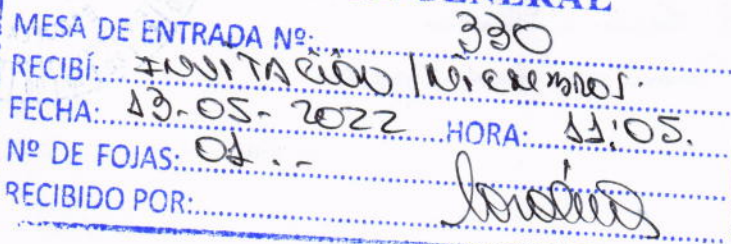 GENERAL
MESA DE ENTRADA Nº: 330
RECIBÍ: INVITACIÓN / MIEMBROS.
FECHA: 13-05-2022 HORA: 11:05.
Nº DE FOJAS: 01.-
RECIBIDO POR: